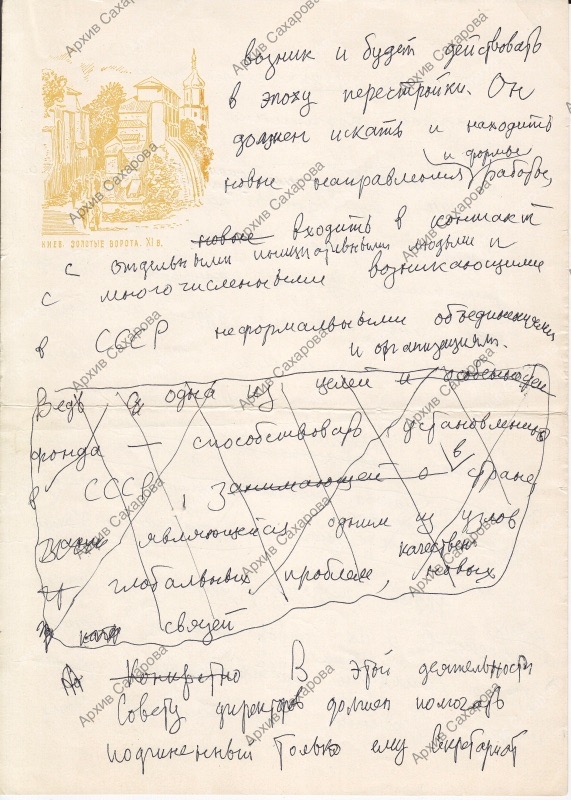 возник и будет действовать
в эпоху перестройки. Он
должен искать и находить
и формы
новые направления работы,
КИЕВ. ЗОЛОТЫЕ ВОРОТА. XI в.
новые входить в контакт
с отдельными инициативными людьми и
с многочисленными возникающими
в СССР неформальными объединениями
и организациями.
Ведь одна из целей и особенностей
фонда — способствовать установлению
в СССР, занимающей в стране,
являющейся одним из узлов
качественно
глобальных проблем, новых
связей
Конкретно В этой деятельности
Совету директоров должен помогать
подчиненный только ему секретариат
Архив Сахарова